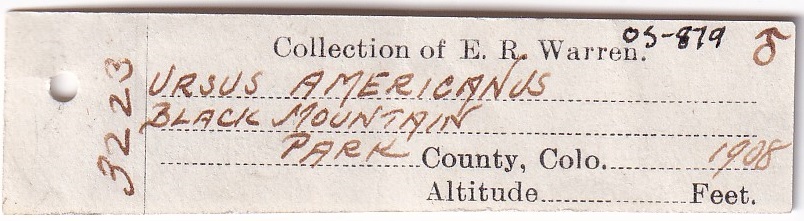 OS-879
Collection of E. R. Warren. ♂
URSUS AMERICANUS
BLACK MOUNTAIN
PARK County, Colo. 1908
Altitude Feet.
3223